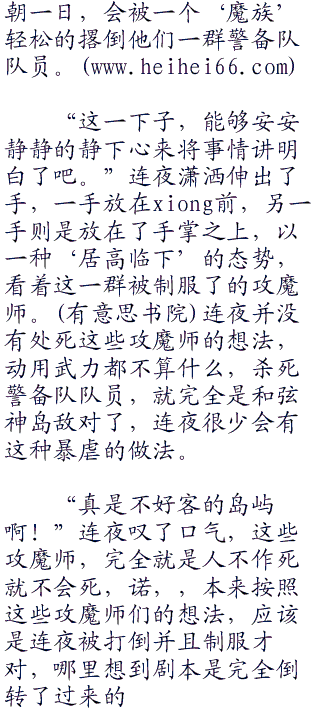 朝一日，会被一个‘魔族’
轻松的撂倒他们一群警备队
队员。(www.heihei66.com)
“这一下子，能够安安
静静的静下心来将事情讲明
白了吧。”连夜潇洒伸出了
手，一手放在xiong前，另一
手则是放在了手掌之上，以
一种‘居高临下’的态势，
看着这一群被制服了的攻魔
师。(有意思书院)连夜并没
有处死这些攻魔师的想法，
动用武力都不算什么，杀死
警备队队员，就完全是和弦
神岛敌对了，连夜很少会有
这种暴虐的做法。
“真是不好客的岛屿
啊！”连夜叹了口气，这些
攻魔师，完全就是人不作死
就不会死，诺，，本来按照
这些攻魔师们的想法，应该
是连夜被打倒并且制服才
对，哪里想到剧本是完全倒
转了过来的